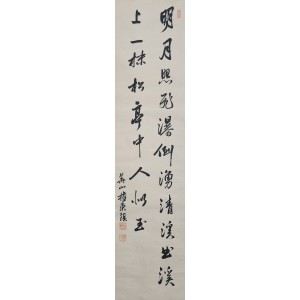 明月照飛瀑倒湧清溪曲溪
上一株松亭中人似玉